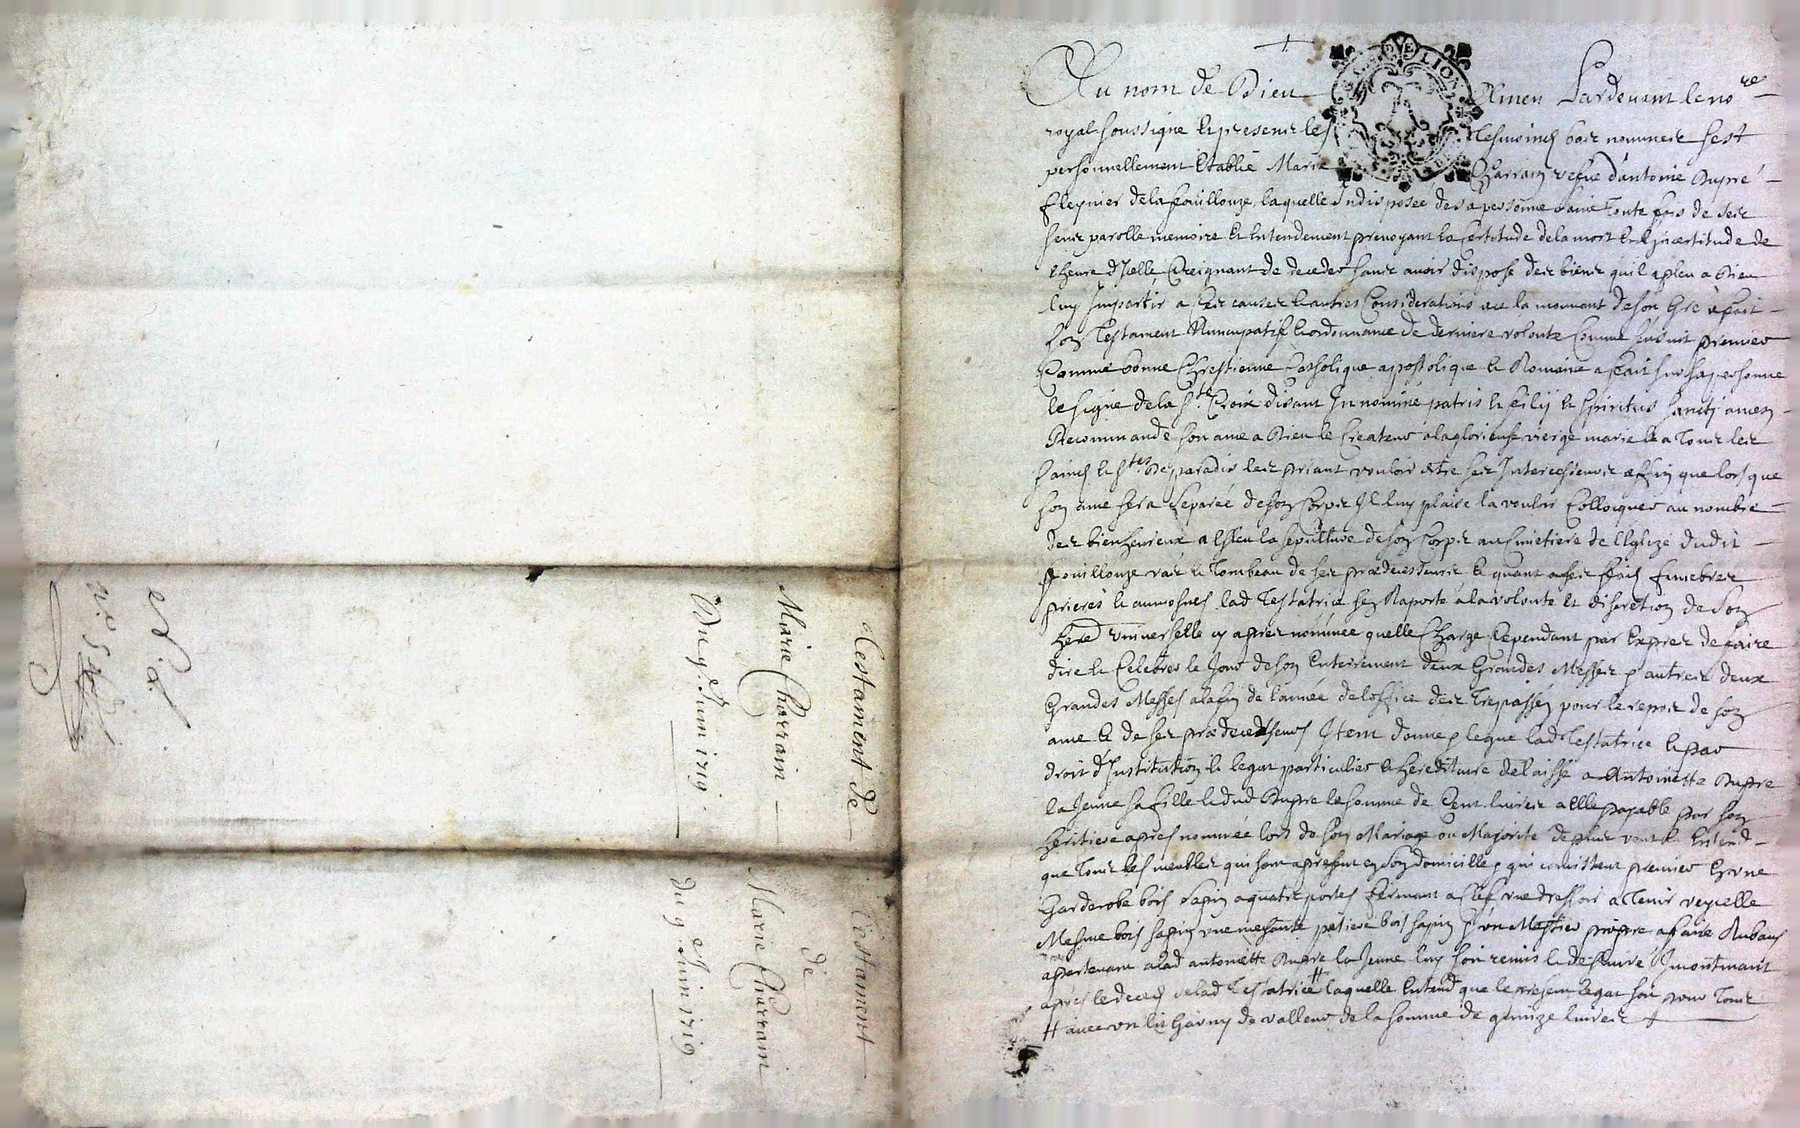 Testament de
Marie Charrain
Du 9e Juin 1719.
Testament
de
Marie Charrain
du 9e Juin 1719.
DE LION
Au nom de Dieu Amen Pardevant le nore
royal soussigne et presentz les tesmoingz bas nommez sest
personnellement Establie Marie Charrain vefve d'antoine Dupré
de la fouillouze, laquelle Indisposée de sa personne saine toute fois de ses
sens parolle memoire et Entendement prevoyant la Certitude de la mort et L'incertitude de
l'heure d'Icelle Creignant de deceder sans avoir dispose des biens qu'il a pleu a Dieu
luy Impartir a ces causes et autres Considerations de son Gré a fait
son Testament Nuncupatif et ordonnance de derniere volonte Comme sensuit premier
Comme bonne Chrestienne Catholique apostolique et Romaine a fait sur sa personne
le signe de la Ste Croix disant In nomine patris et filij et spiritus sancti amen
Recommande son ame a Dieu le Createur a la glorieuse vierge marie et a tous les
saincts et stes de paradis les priant vouloir estre ses Intercesseurs affin que lors que
son ame sera separée de son corps Il luy plaise la vouloir Collocquer au nombre
des bienheureux a Esleu la sepulture de son Corps au Cimetiere de L'Eglize dudit
fouillouze le Tombeau de ses prædecesseurs et quant a ses frais funebres
prieres et aumosnes lad Testatrice sen Raporte a la volonte et discretion de son
hered universelle cy apres nommée quelle Charge Cependant par Exprez de faire
dire et Celebrer le Jour de son Enterrement deux Grandes Messes & autres deux
Grandes Messes a la fin de lannée de loffice des Trepassés pour le repos de son
ame et de ses prædecesseurs Item donne & legue lad Testatrice et par
droit d'Institution et legat particulier & hereditaire delaissé a Antoinette Dupre
la Jeune sa fille & dud Dupre la somme de Cent livres a Elle payable par son
heritiere apres nommée lors de son Mariage ou Majorité de plus veut et Entend
que tous les meubles qui sont a present en son domicille & qui consistent premier En une
Garderobe bois sapin a quatre portes fermant a clef une dressoir a tenir veyselle
Mesme bois sapin une patiere bois sapin & un Mestier propre a faire Rubans
appartenant a lad antoinette Dupre la Jeune luy soit remis et delivré
apres le deces de lad Testatrice # laquelle Entend que le present legat soit pour tous
# avec un lit Garny de valleur de la somme de quinze livres +